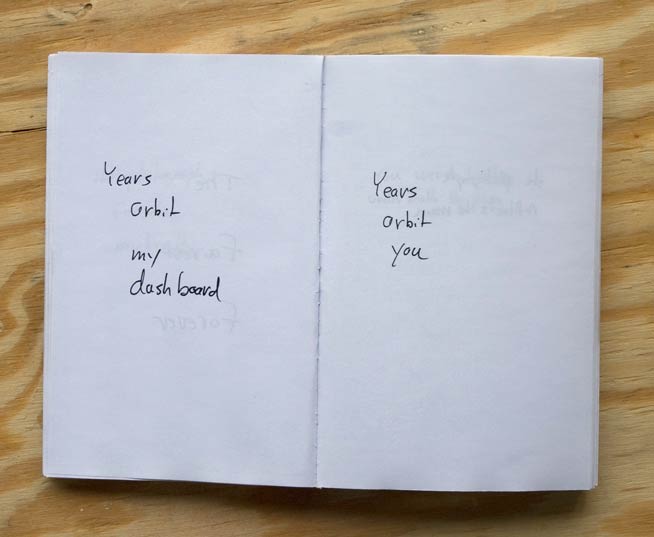 Years
orbit
my
dashboard
Years
orbit
you